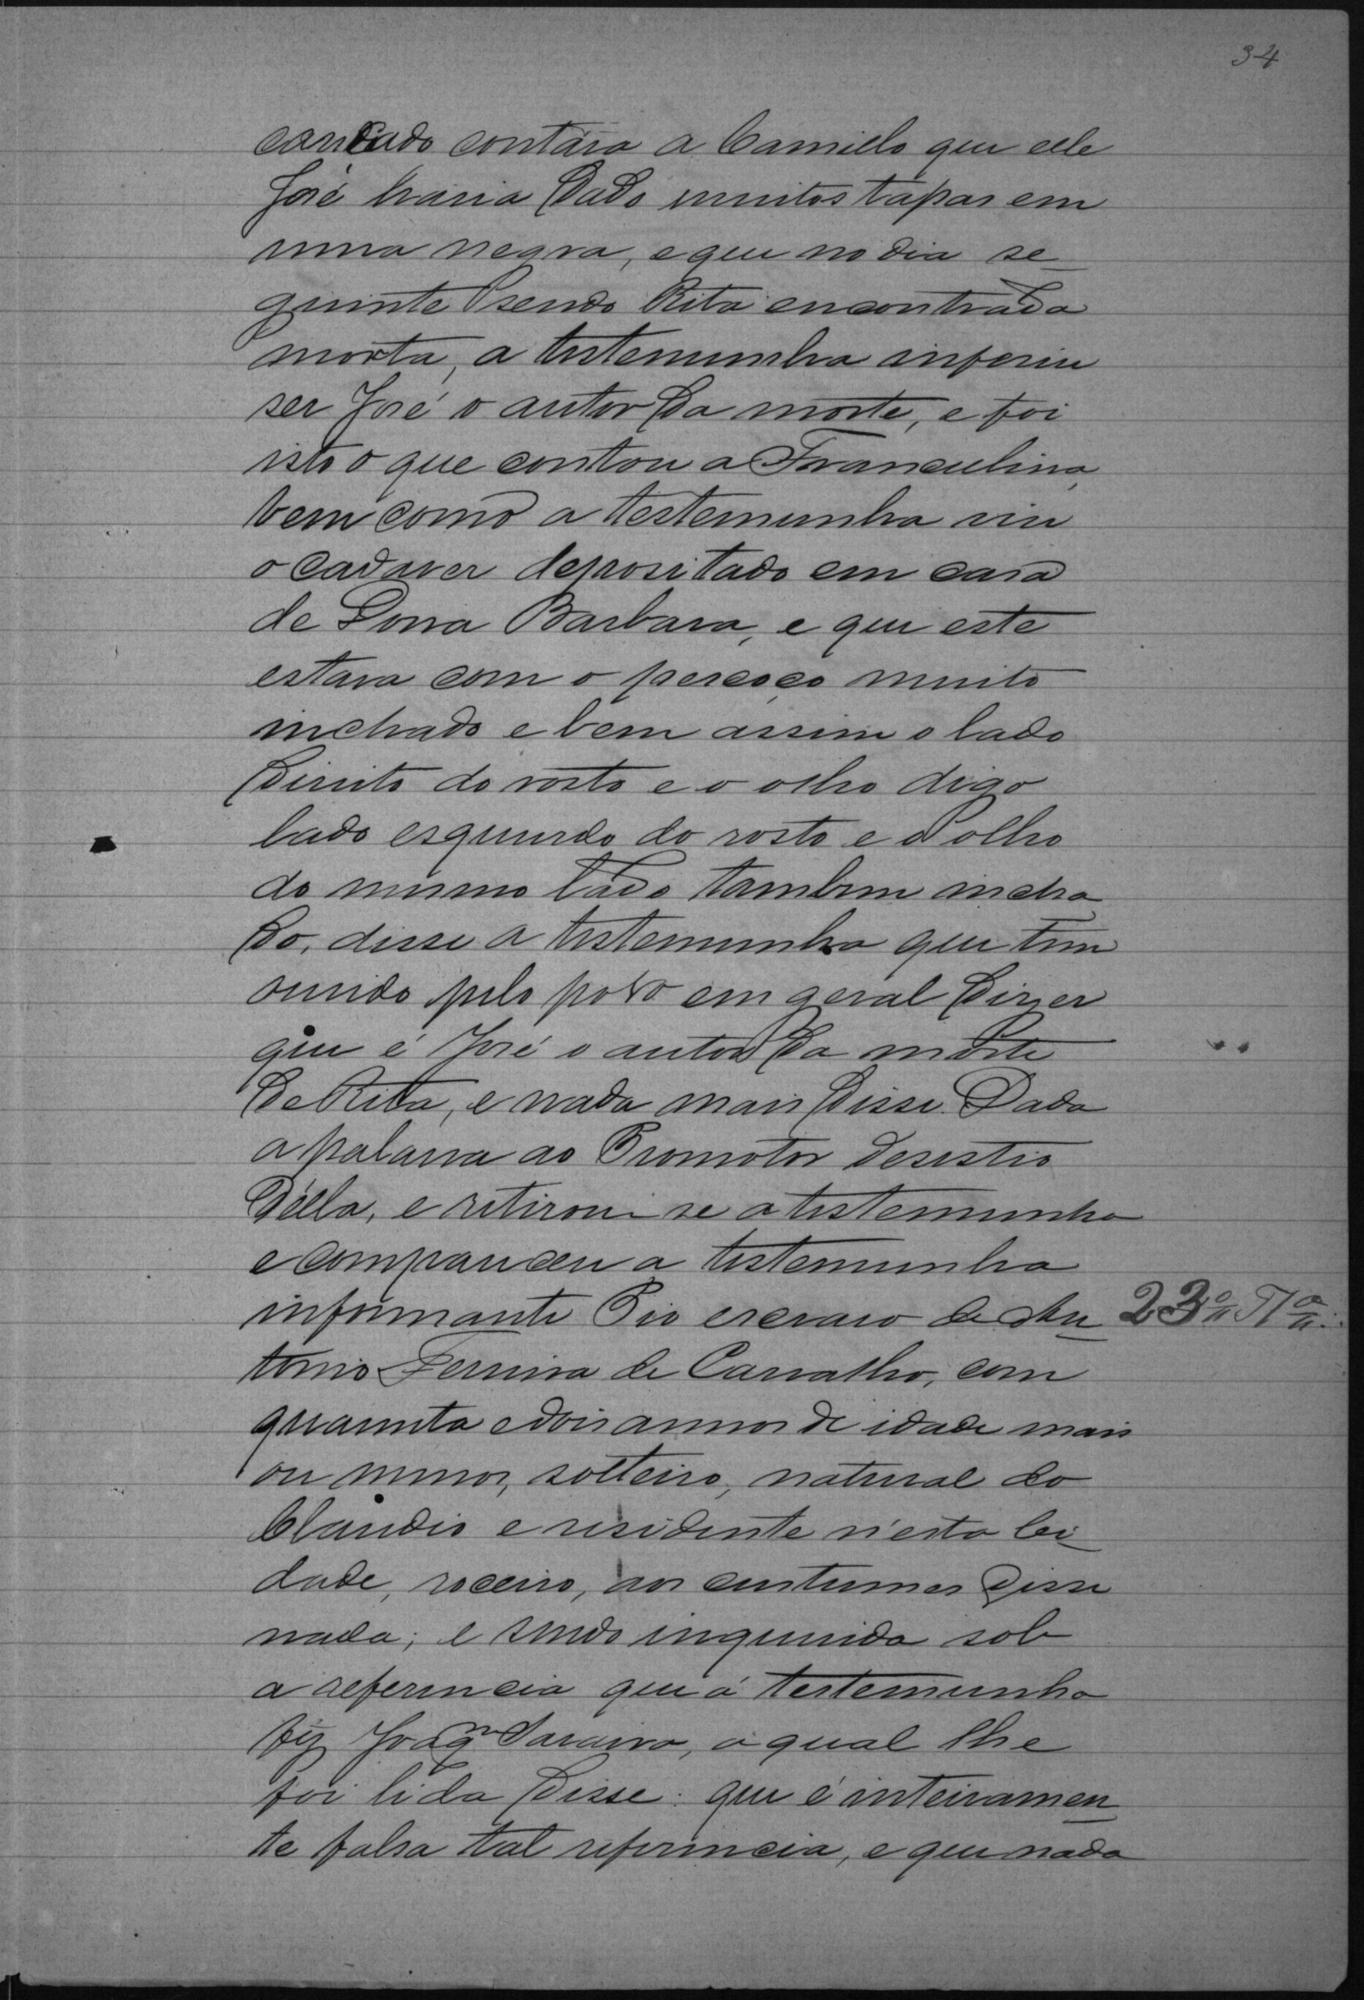 34
cançado contára a Camillo que elle
José havia dado muitos tapas em
uma negra, e que no dia se-
guinte sendo Rita encontrada
morta, a testemunha inferiu
ser José o autor da morte, e foi
isto o que contou a Franculina,
bem como a testemunha viu
o cadaver depositado em casa
de Dona Barbara, e que este
estava com o pescoço muito
inchado e bem assim o lado
direito do rosto e o olho digo
lado esquerdo do rosto e o olho
do mesmo lado tambem incha
do, disse a testemunha que tem
ouvido pelo povo em geral dizer
que é José o autor da morte
de Rita, e nada mais disse. Dada
a palavra ao Promotor desistio
d'ella, e retirou-se a testemunha
e compareceu a testemunha
informante Pio escravo de An-
23ª Tª
tonio Ferreira de Carvalho, com
quarenta e dois annos de idade mais
ou menos, solteiro, natural do
Claudio e residente n'esta Ci-
dade, roceiro, aos custumes disse
nada; e sendo inquerida sob
a referencia que á testemunha
fez Joaqm Saraiva, a qual lhe
foi lida disse: que é inteiramen-
te falsa tal referencia, e que nada